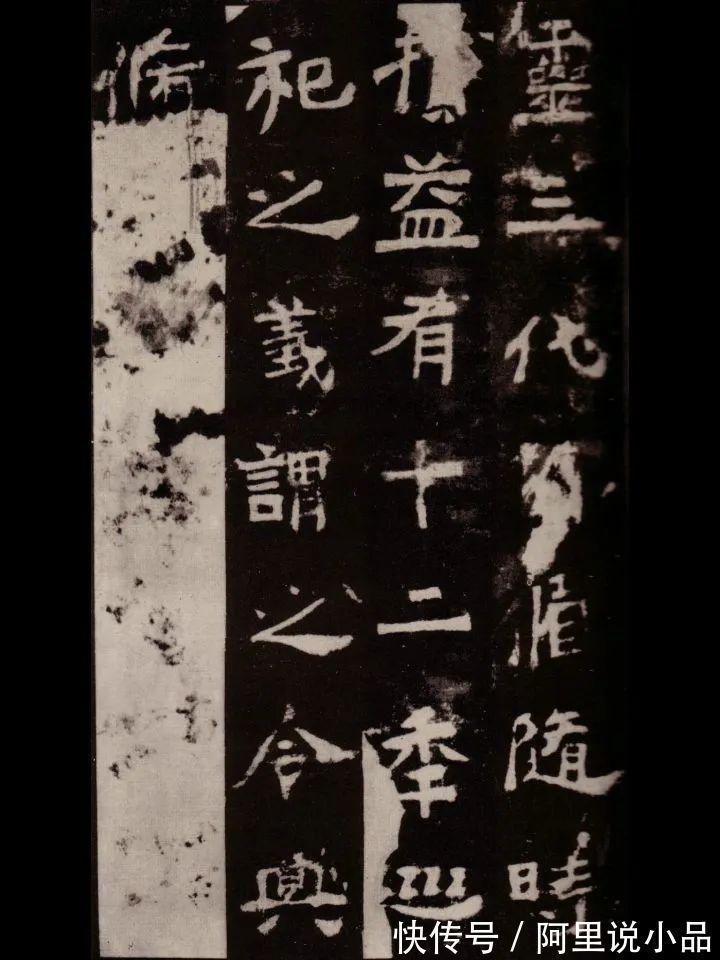 靈三代脩隨時
益有十二秊巡
祀之義謂之
快传号/阿里说小品